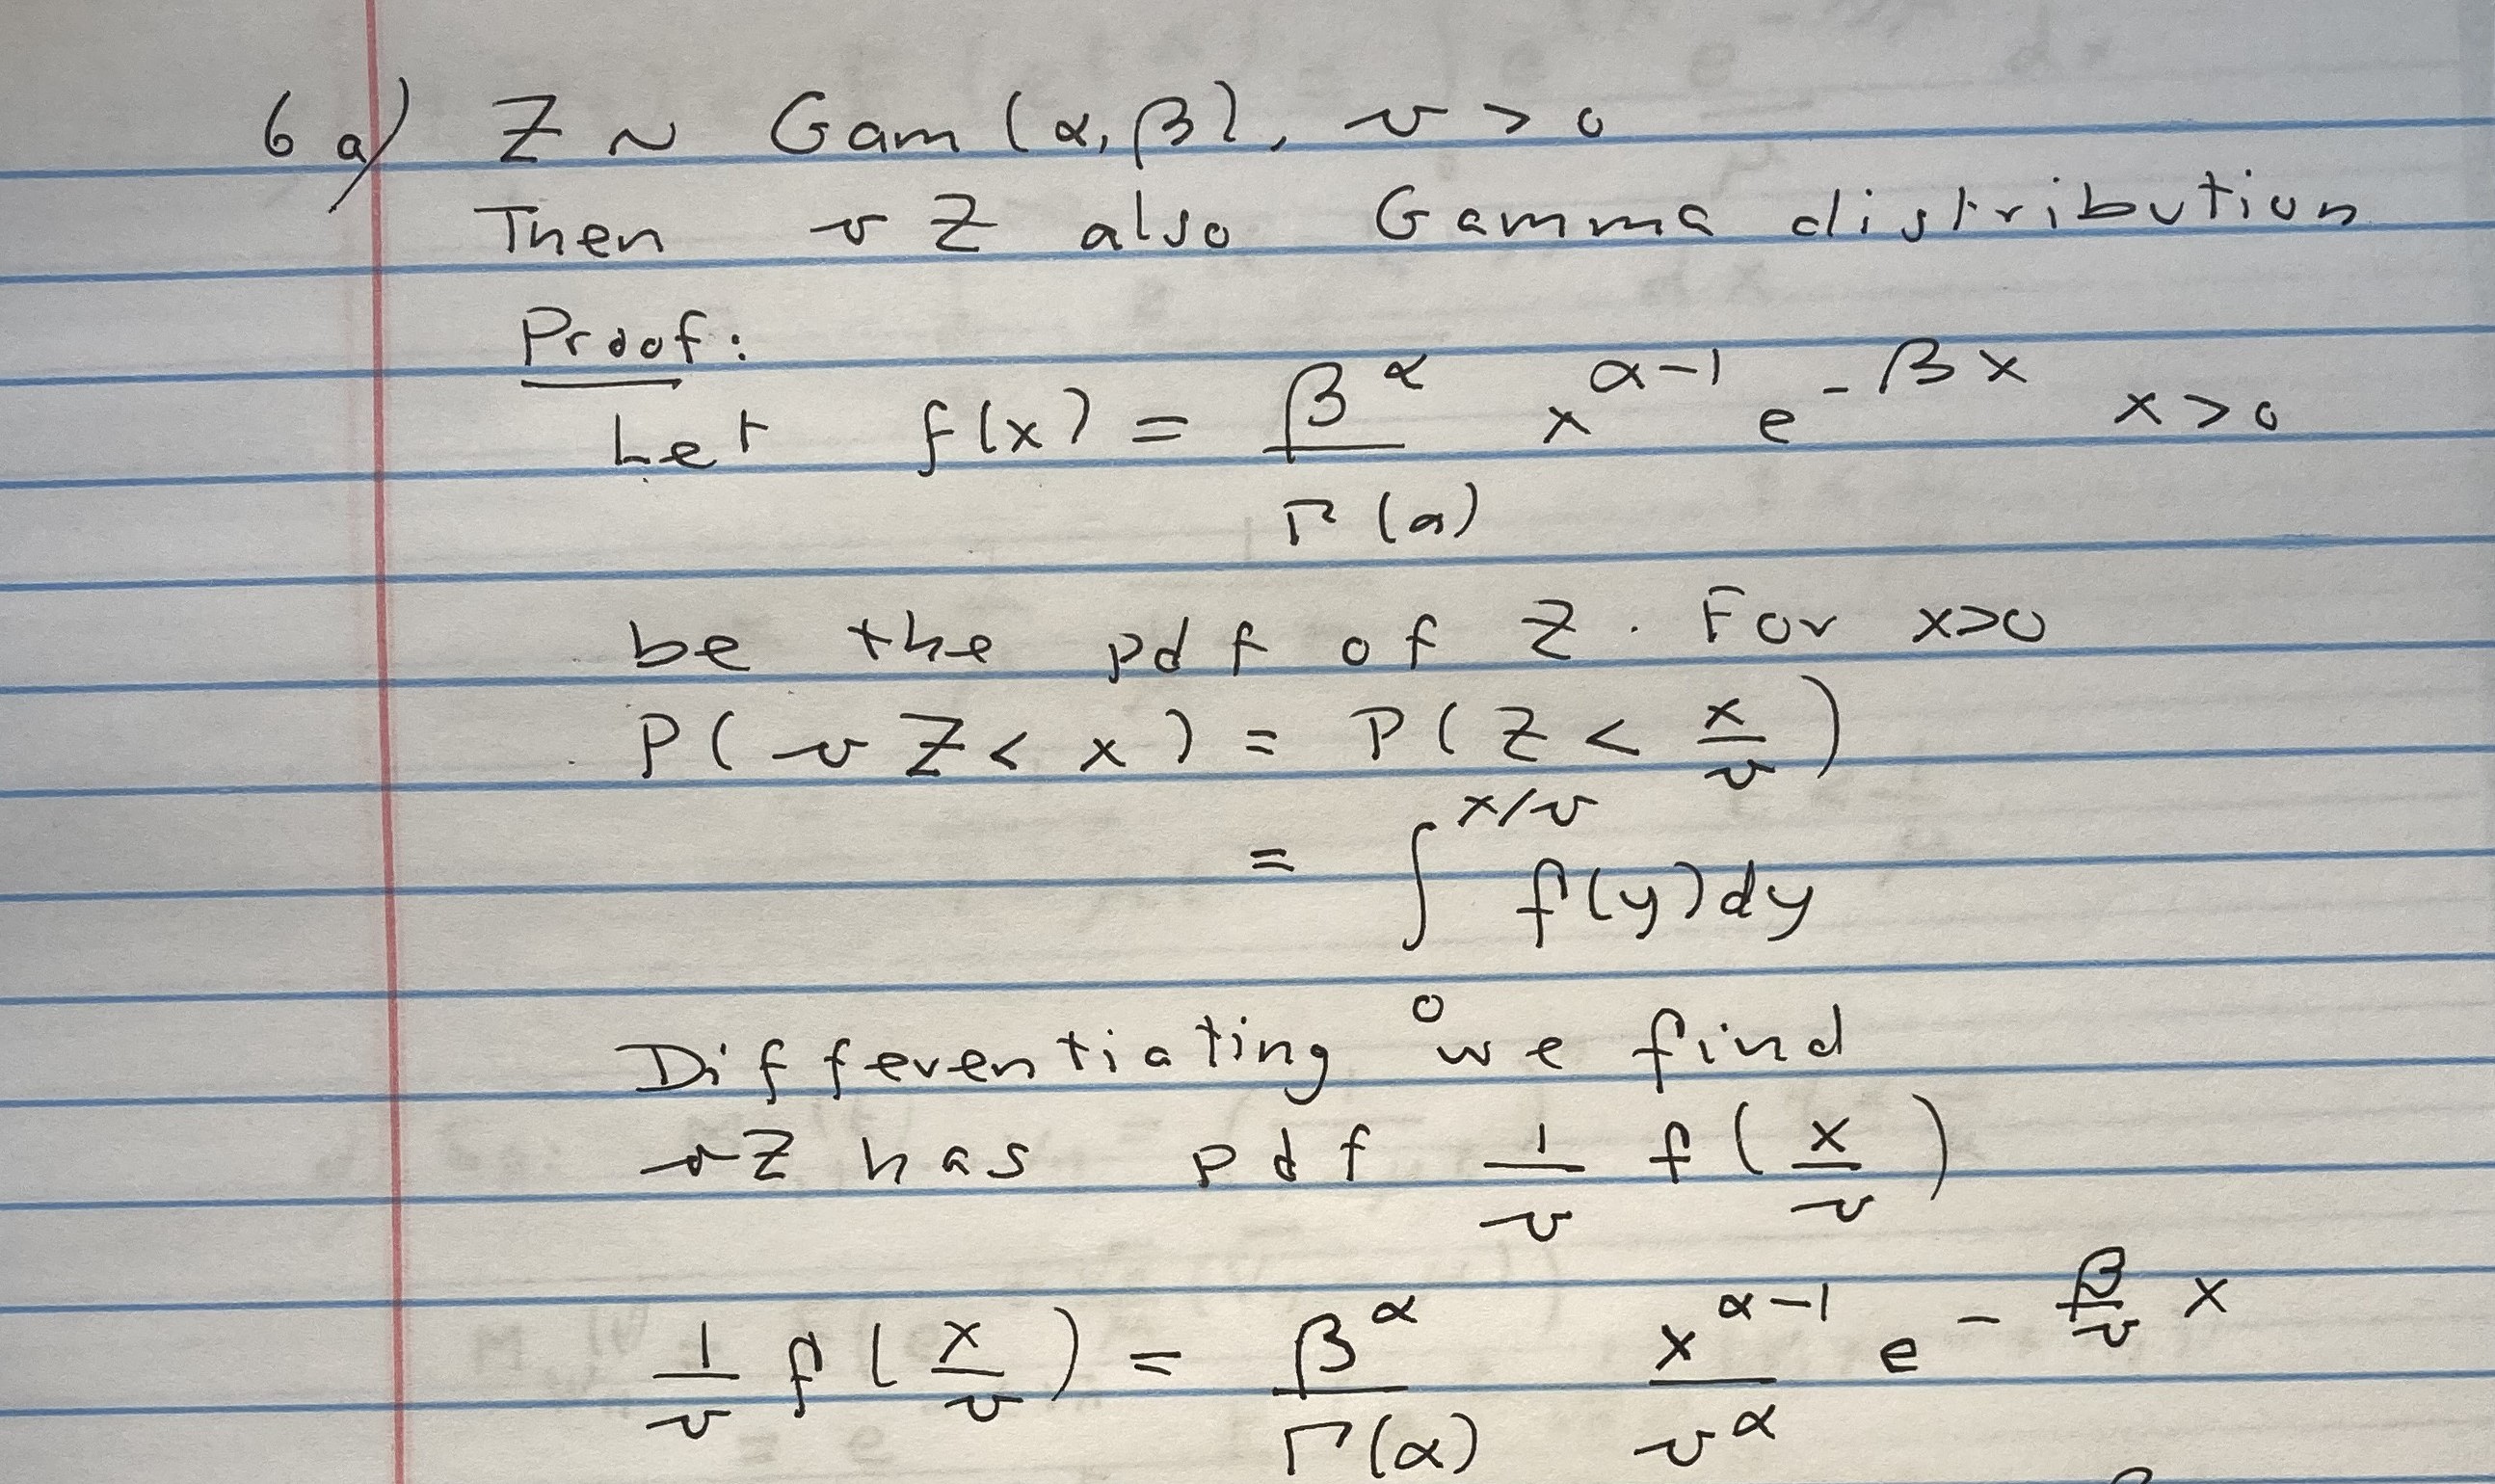 6 a) Z ~ Gam (α, β), v > 0
Then v Z also Gamma distribution
Proof:
Let f(x) = β^α / Γ(α) x^(α-1) e^(-βx) x > 0
be the pdf of Z. For x>0
P( v Z < x ) = P( Z < x/v )
= ∫_0^(x/v) f(y)dy
Differentiating we find
vZ has pdf 1/v f( x/v )
1/v f( x/v ) = β^α / Γ(α) x^(α-1) / v^α e^(-(β/v) x)